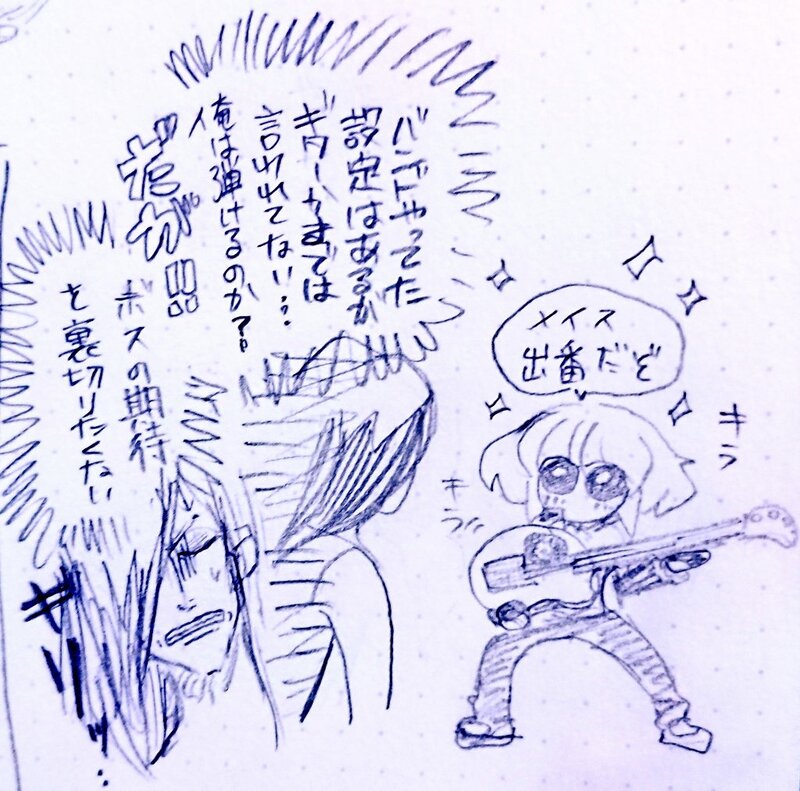 バンドやってた
設定はあるが
ギターかまでは
言われてない…
俺は弾けるのか?
だが!!!
ボスの期待
を裏切りたくない
ギリッ…
メイス
出番だぞ
キラ
キラ